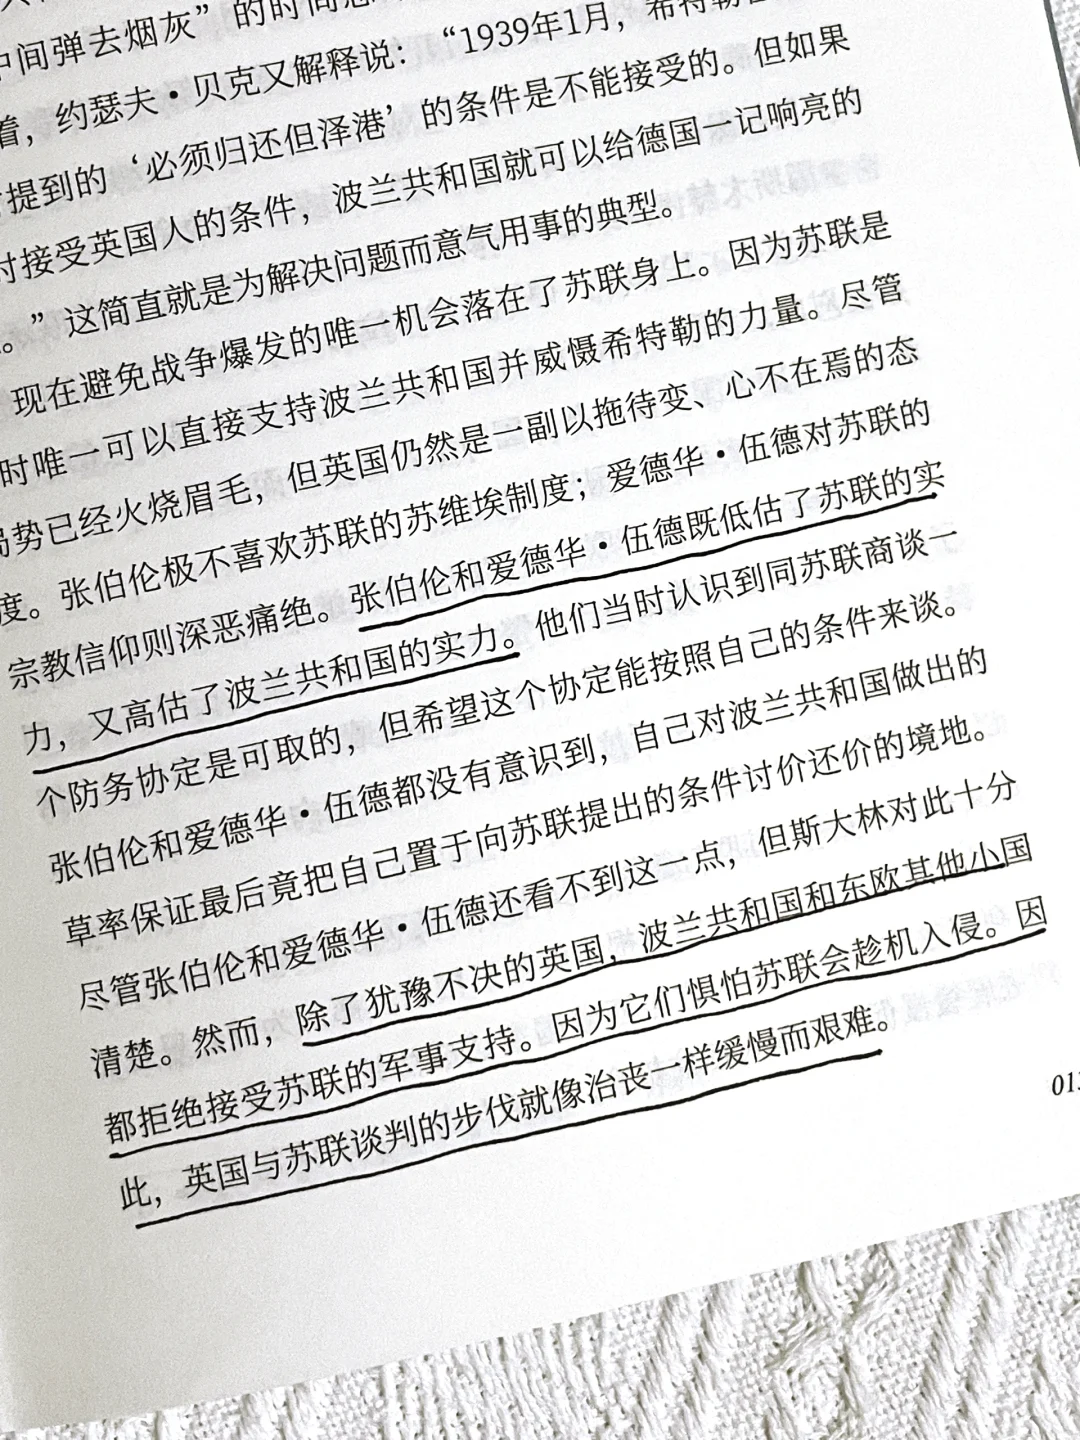 中间弹去烟灰”的时间
着，约瑟夫·贝克又解释说：“1939年1月，希特勒
提到的‘必须归还但泽港’的条件是不能接受的。但如果
时接受英国人的条件，波兰共和国就可以给德国一记响亮的
。”这简直就是为解决问题而意气用事的典型。
现在避免战争爆发的唯一机会落在了苏联身上。因为苏联是
时唯一可以直接支持波兰共和国并威慑希特勒的力量。尽管
局势已经火烧眉毛，但英国仍然是一副以拖待变、心不在焉的态
度。张伯伦极不喜欢苏联的苏维埃制度；爱德华·伍德对苏联的
宗教信仰则深恶痛绝。张伯伦和爱德华·伍德既低估了苏联的实
力，又高估了波兰共和国的实力。他们当时认识到同苏联商谈一
个防务协定是可取的，但希望这个协定能按照自己的条件来谈。
张伯伦和爱德华·伍德都没有意识到，自己对波兰共和国做出的
草率保证最后竟把自己置于向苏联提出的条件讨价还价的境地。
尽管张伯伦和爱德华·伍德还看不到这一点，但斯大林对此十分
清楚。然而，除了犹豫不决的英国，波兰共和国和东欧其他小国
都拒绝接受苏联的军事支持。因为它们惧怕苏联会趁机入侵。因
此，英国与苏联谈判的步伐就像治丧一样缓慢而艰难。